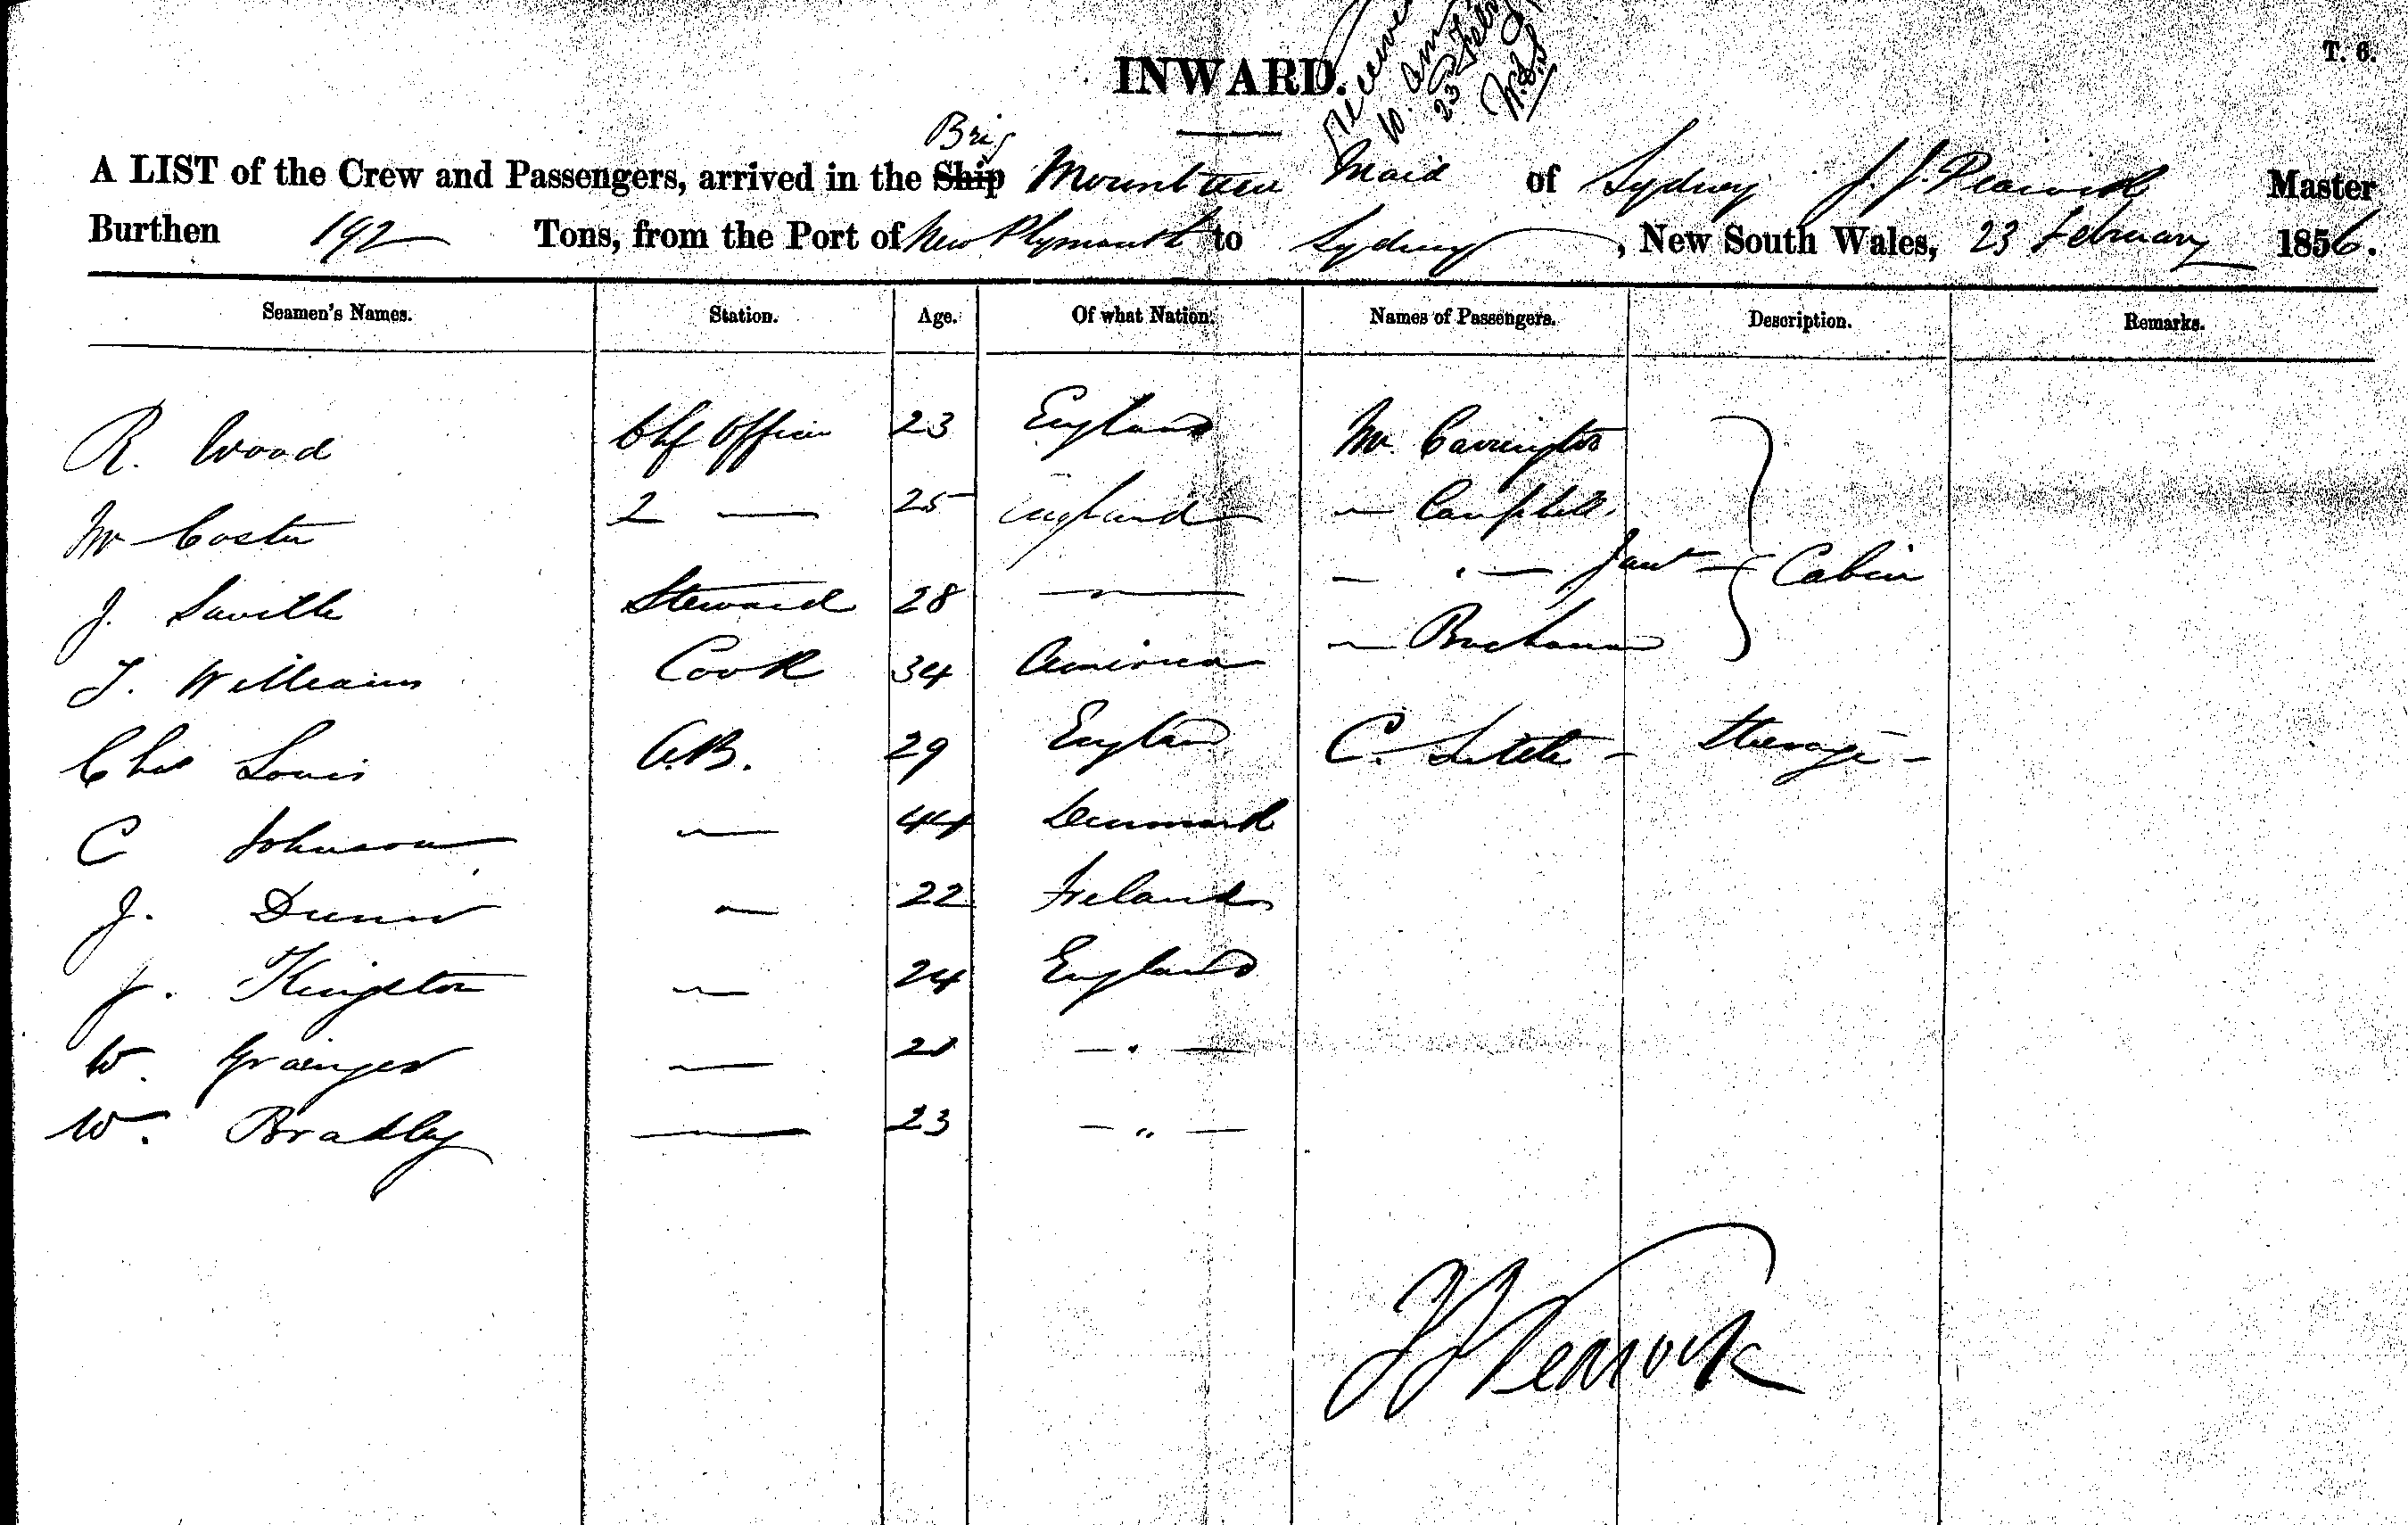 T. 6.
INWARD.
10. am
23 Feb
Brig
A LIST of the Crew and Passengers, arrived in the Ship Mountain Maid of Sydney J. J. Peacock Master
Burthen 192 Tons, from the Port of New Plymouth to Sydney, New South Wales, 23 February 1856.
Seamen's Names. Station. Age. Of what Nation. Names of Passengers. Description. Remarks.
R. Wood Chf Officer 23 England Mr. Carrington
W Coster 2 — 25 England — Campbell
J. Saville Steward 28 — — " — Junr — Cabin
J. Williams Cook 34 America — Buchanan
Chs Louis A.B. 29 England C. Little — Steerage —
C Johnson — 44 Denmark
J. Dunn — 22 Ireland
J. Kingston — 24 England
W. Grainger — 21 — " —
W. Bradley — 23 — " —
J J Peacock